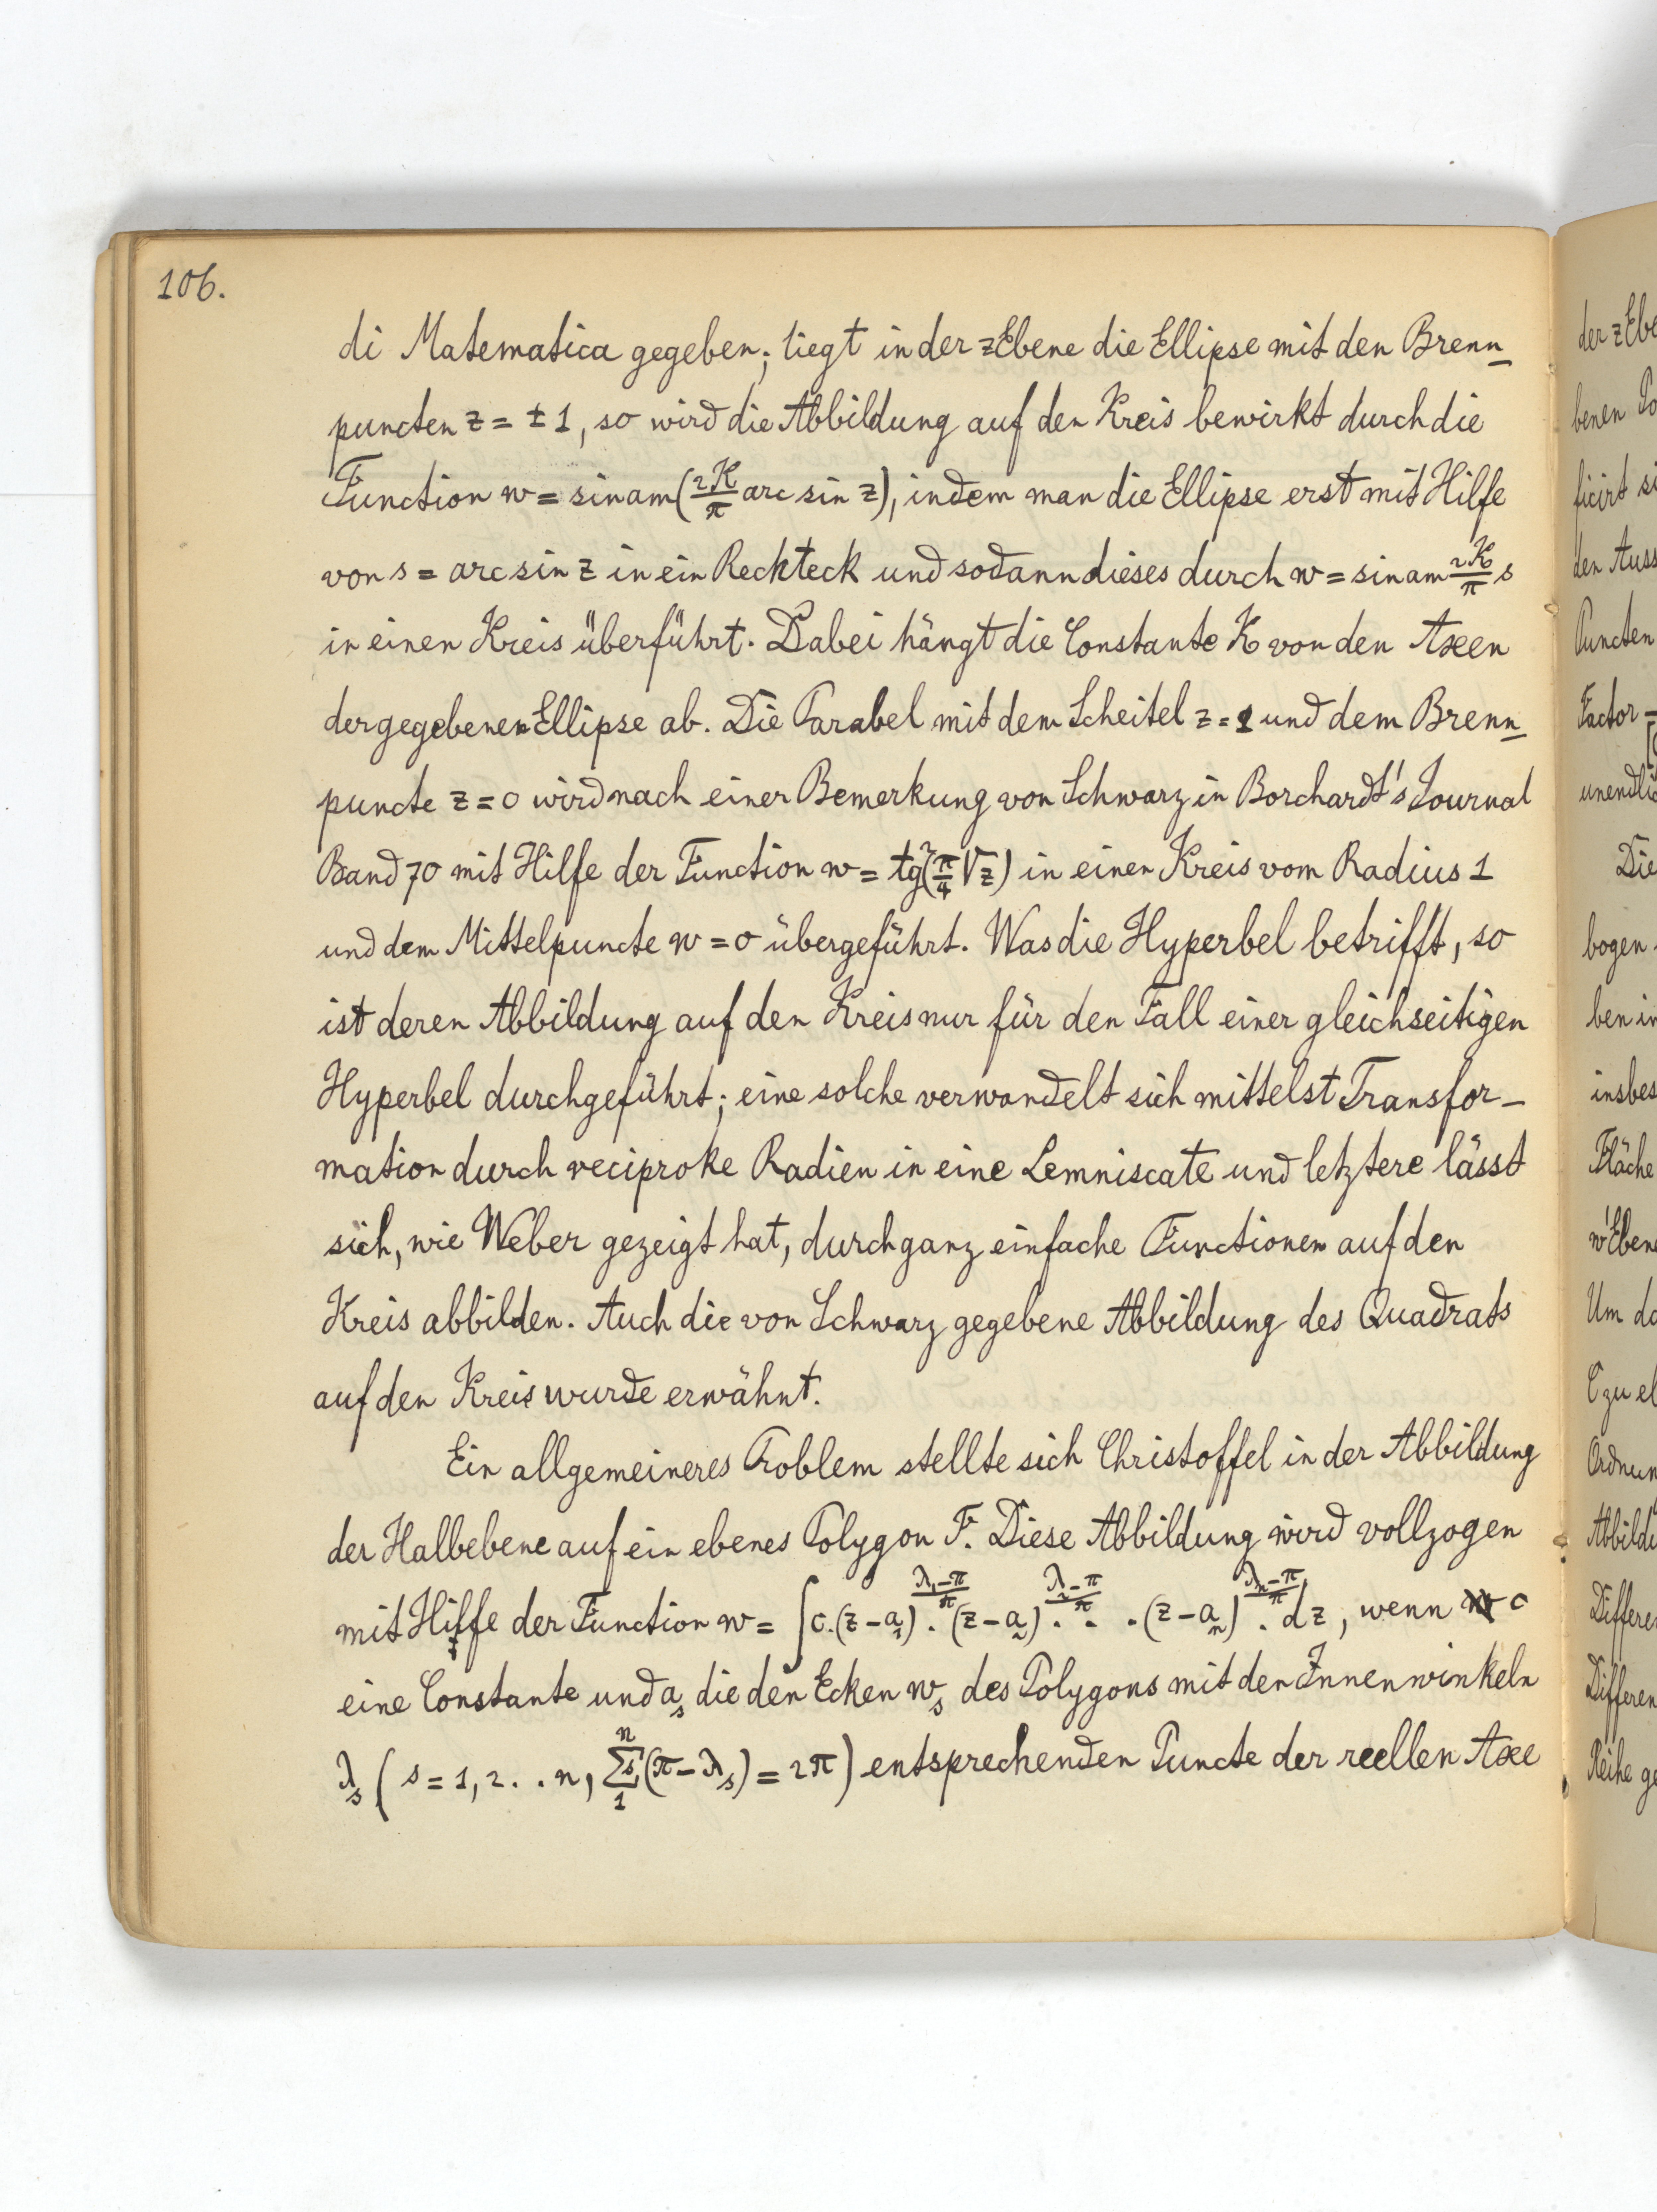 106.
di Matematica gegeben; liegt in der zEbene die Ellipse mit den Brenn_
puncten z = ± 1, so wird die Abbildung auf den Kreis bewirkt durch die
Function w = sinam(2K/π arc sin z), indem man die Ellipse erst mit Hilfe
von s = arc sin z in ein Reckteck und sodann dieses durch w = sinam 2K/π s
in einen Kreis überführt. Dabei hängt die Constante K von den Axen
der gegebenen Ellipse ab. Die Parabel mit dem Scheitel z = 1 und dem Brenn_
puncte z = 0 wird nach einer Bemerkung von Schwarz in Borchardt's Journal
Band 70 mit Hilfe der Function w = tg²(π/4 √z) in einen Kreis vom Radius 1
und dem Mittelpuncte w = 0 übergeführt. Was die Hyperbel betrifft, so
ist deren Abbildung auf den Kreis nur für den Fall einer gleichseitigen
Hyperbel durchgeführt; eine solche verwandelt sich mittelst Transfor_
mation durch reciproke Radien in eine Lemniscate und letztere lässt
sich, wie Weber gezeigt hat, durch ganz einfache Functionen auf den
Kreis abbilden. Auch die von Schwarz gegebene Abbildung des Quadrats
auf den Kreis wurde erwähnt.
Ein allgemeineres Problem stellte sich Christoffel in der Abbildung
der Halbebene auf ein ebenes Polygon F. Diese Abbildung wird vollzogen
mit Hilfe der Function w = ∫c.(z-a₁)^((λ₁-π)/π) . (z-a₂)^((λ₂-π)/π) . . . (z-aₙ)^((λₙ-π)/π) . dz, wenn c
eine Constante und aₛ die den Ecken wₛ des Polygons mit den Innenwinkeln
λₛ (s = 1, 2 . . n, Σ₁ⁿ(π-λₛ) = 2π) entsprechenden Puncte der reellen Axe
der zEbe
benen Po
ficirt si
den Auss
Puncten
Factor
unendlic
Die
bogen
ben in
insbes
Fläche
w'Ebene
Um da
C zu el
Ordnun
Abbildu
Differe
Differen
Reihe ge